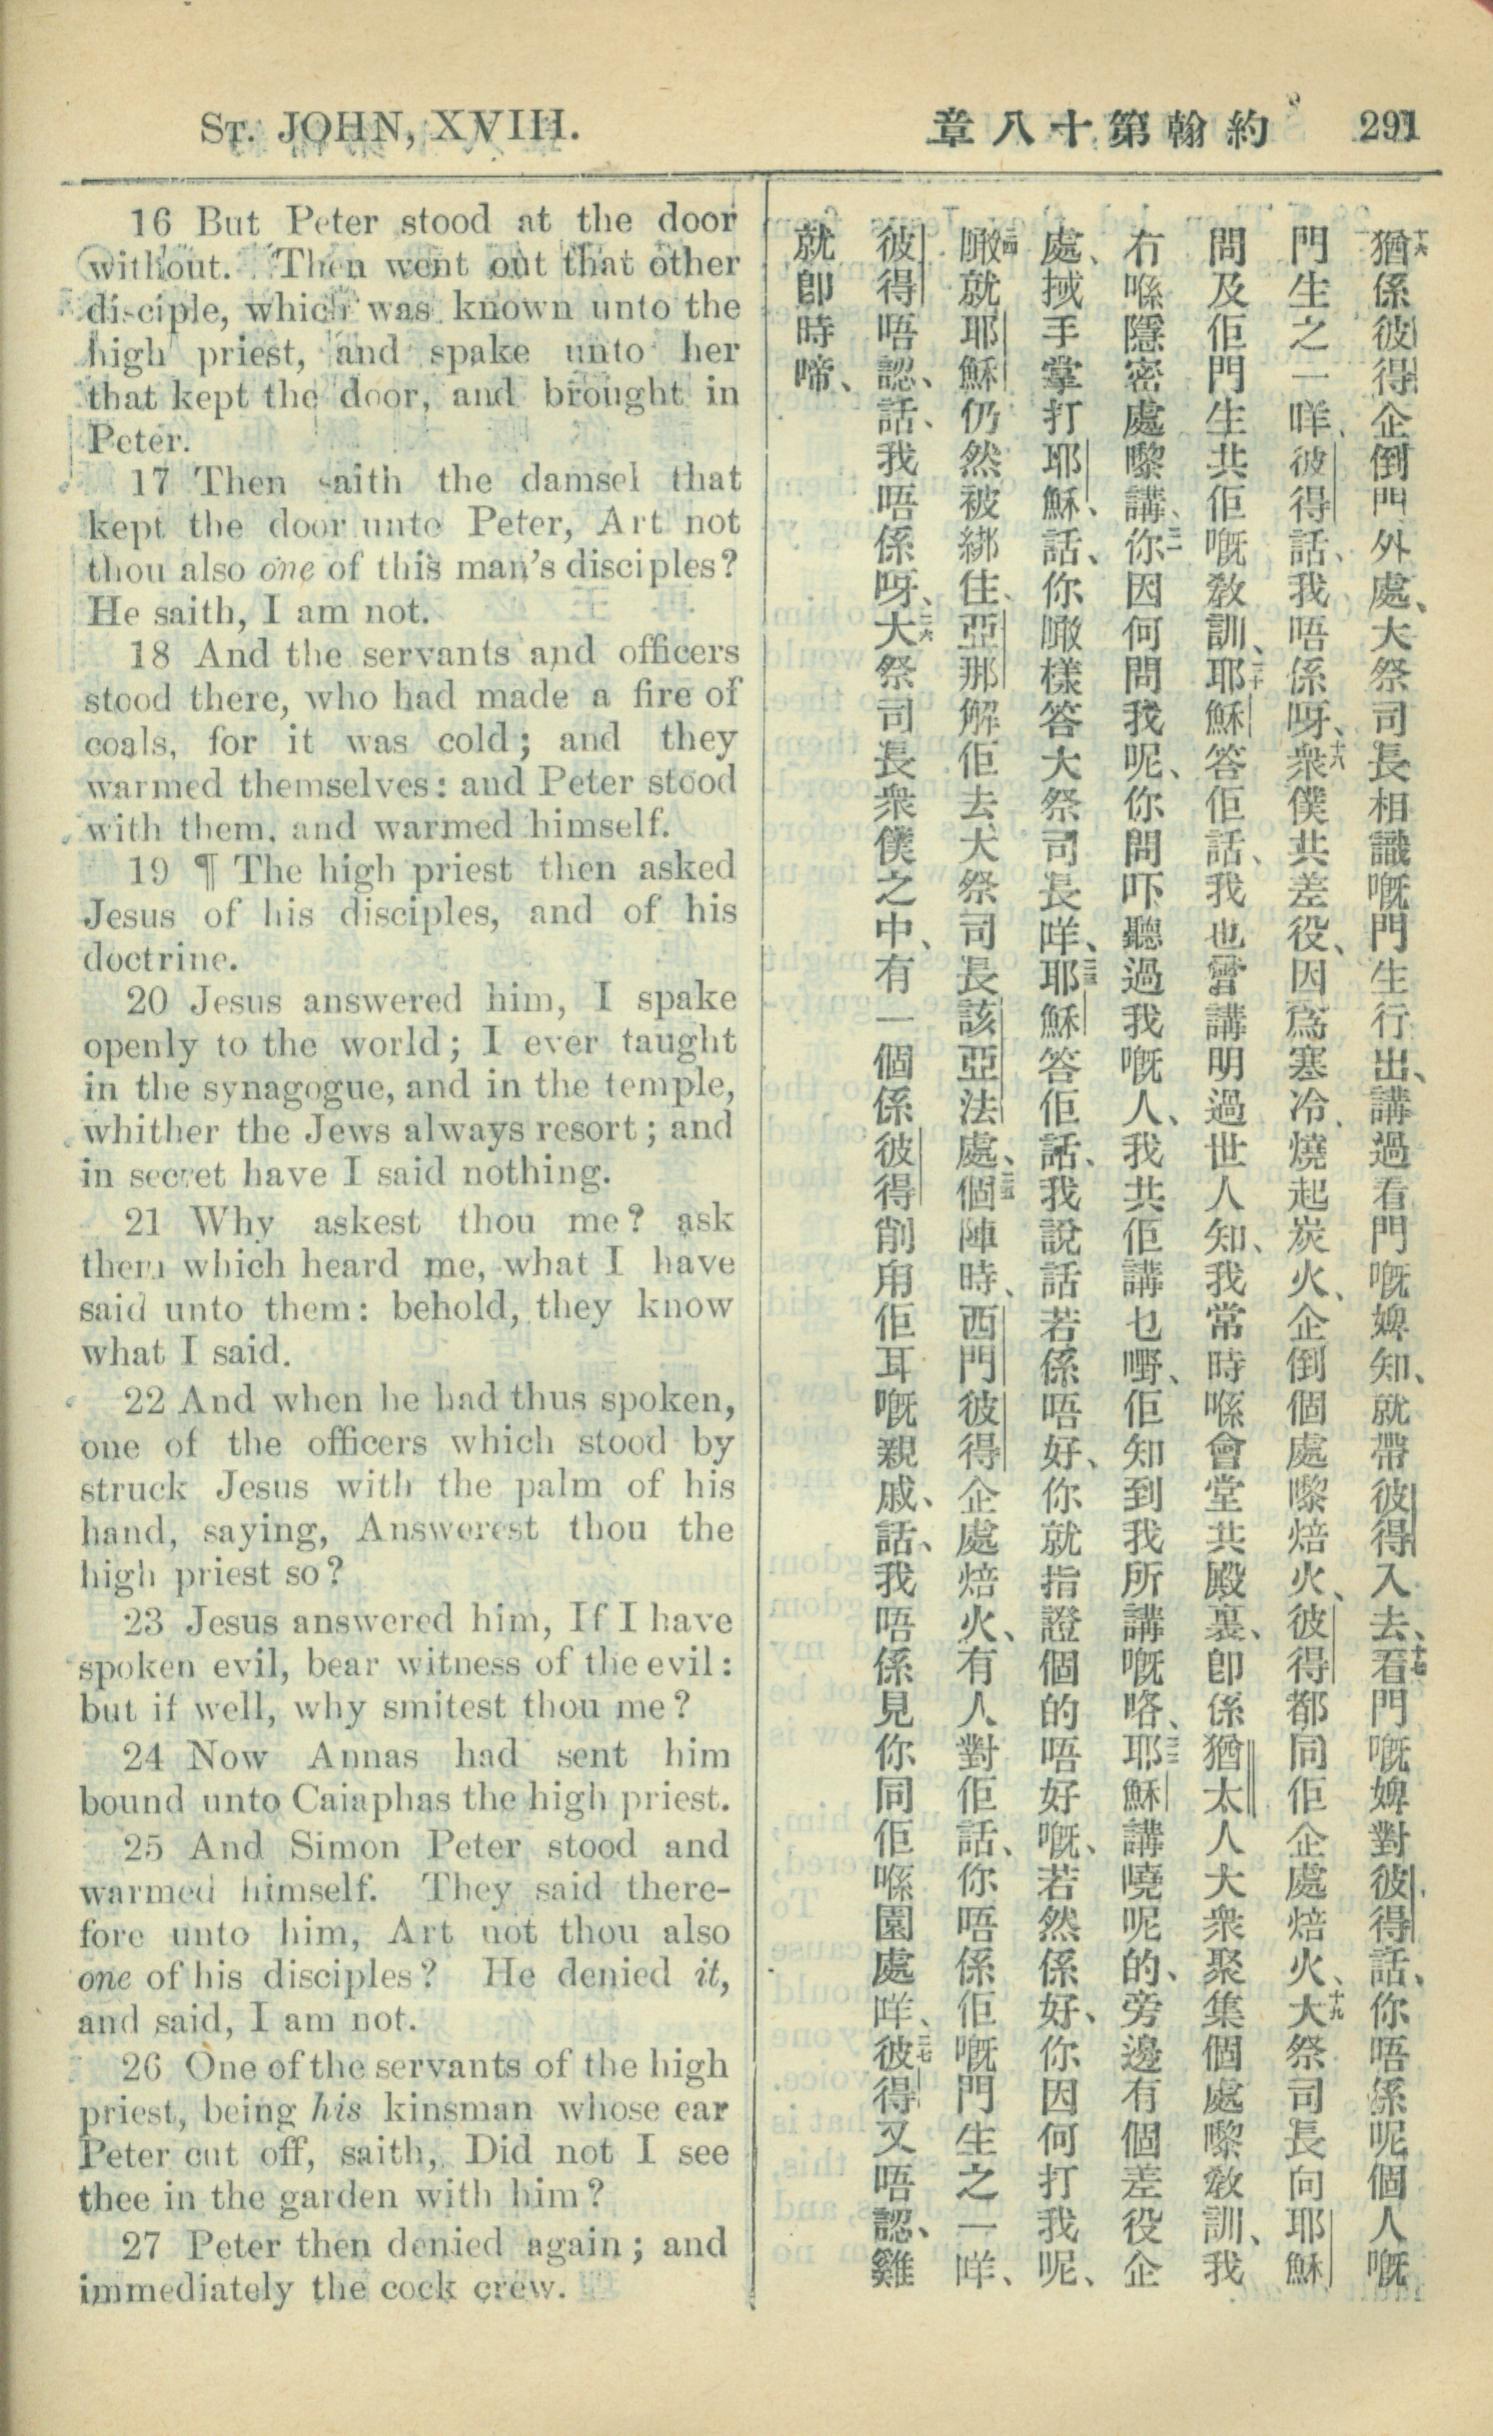 ST. JOHN, XVIII.
章八十第翰約 291
16 But Peter stood at the door
without. Then went out that other
disciple, which was known unto the
high priest, and spake unto her
that kept the door, and brought in
Peter.
17 Then saith the damsel that
kept the door unto Peter, Art not
thou also one of this man's disciples?
He saith, I am not.
18 And the servants and officers
stood there, who had made a fire of
coals, for it was cold; and they
warmed themselves: and Peter stood
with them, and warmed himself.
19 ¶ The high priest then asked
Jesus of his disciples, and of his
doctrine.
20 Jesus answered him, I spake
openly to the world; I ever taught
in the synagogue, and in the temple,
whither the Jews always resort; and
in secret have I said nothing.
21 Why askest thou me? ask
them which heard me, what I have
said unto them: behold, they know
what I said.
22 And when he had thus spoken,
one of the officers which stood by
struck Jesus with the palm of his
hand, saying, Answerest thou the
high priest so?
23 Jesus answered him, If I have
spoken evil, bear witness of the evil:
but if well, why smitest thou me?
24 Now Annas had sent him
bound unto Caiaphas the high priest.
25 And Simon Peter stood and
warmed himself. They said there-
fore unto him, Art not thou also
one of his disciples? He denied it,
and said, I am not.
26 One of the servants of the high
priest, being his kinsman whose ear
Peter cut off, saith, Did not I see
thee in the garden with him?
27 Peter then denied again; and
immediately the cock crew.
十六猶係彼得企倒門外處、大祭司長相識嘅門生行出、講過看門嘅婢知、就帶彼得入去、十七看門嘅婢對彼得話、你唔係呢個人嘅
門生之一咩、彼得話、我唔係呀、十八衆僕共差役、因爲寒冷、燒起炭火、企倒個處嚟焙火、彼得都同佢企處焙火、十九大祭司長向耶穌
問及佢門生共佢嘅教訓、二十耶穌答佢話、我也曾講明過世人知、我常時喺會堂共殿裏、卽係猶太人大衆聚集個處嚟教訓、我
冇喺隱密處嚟講、二一你因何問我呢、你問吓聽過我嘅人、我共佢講乜嘢、佢知到我所講嘅咯、二二耶穌講嘵呢的、旁邊有個差役企
處、搣手掌打耶穌、話、你噉樣答大祭司長咩、二三耶穌答佢話、我說話若係唔好、你就指證個的唔好嘅、若然係好、你因何打我呢、
二四噉就耶穌仍然被綁住、亞那解佢去大祭司長該亞法處、二五個陣時、西門彼得企處焙火、有人對佢話、你唔係佢嘅門生之一咩、
彼得唔認、話、我唔係呀、二六大祭司長衆僕之中、有一個係彼得削甩佢耳嘅親戚、話、我唔係見你同佢喺園處咩、二七彼得又唔認、雞
就卽時啼、